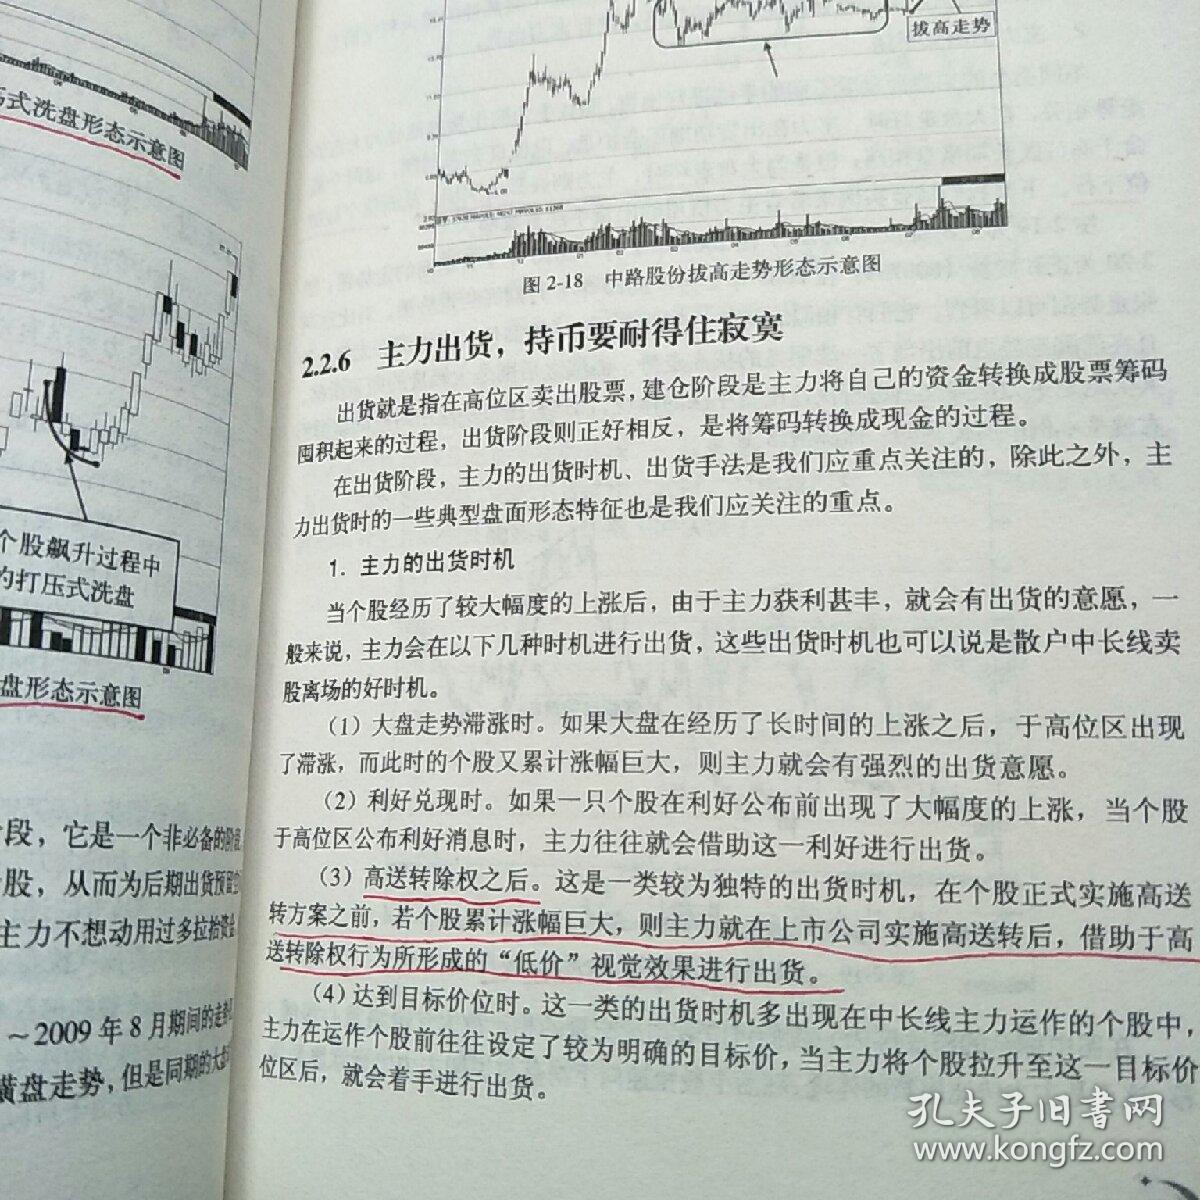 式洗盘形态示意图
个股飙升过程中
的打压式洗盘
盘形态示意图
段，它是一个非必备的阶段
股，从而为后期出货预留空
主力不想动用过多拉抬资金
～2009 年 8 月期间的走势
横盘走势，但是同期的大盘
拔高走势
图 2-18 中路股份拔高走势形态示意图
2.2.6 主力出货，持币要耐得住寂寞
出货就是指在高位区卖出股票，建仓阶段是主力将自己的资金转换成股票筹码
囤积起来的过程，出货阶段则正好相反，是将筹码转换成现金的过程。
在出货阶段，主力的出货时机、出货手法是我们应重点关注的，除此之外，主
力出货时的一些典型盘面形态特征也是我们应关注的重点。
1. 主力的出货时机
当个股经历了较大幅度的上涨后，由于主力获利甚丰，就会有出货的意愿，一
般来说，主力会在以下几种时机进行出货，这些出货时机也可以说是散户中长线卖
股离场的好时机。
（1）大盘走势滞涨时。如果大盘在经历了长时间的上涨之后，于高位区出现
了滞涨，而此时的个股又累计涨幅巨大，则主力就会有强烈的出货意愿。
（2）利好兑现时。如果一只个股在利好公布前出现了大幅度的上涨，当个股
于高位区公布利好消息时，主力往往就会借助这一利好进行出货。
（3）高送转除权之后。这是一类较为独特的出货时机，在个股正式实施高送
转方案之前，若个股累计涨幅巨大，则主力就在上市公司实施高送转后，借助于高
送转除权行为所形成的“低价”视觉效果进行出货。
（4）达到目标价位时。这一类的出货时机多出现在中长线主力运作的个股中，
主力在运作个股前往往设定了较为明确的目标价，当主力将个股拉升至这一目标价
位区后，就会着手进行出货。
孔夫子旧书网
www.kongfz.com